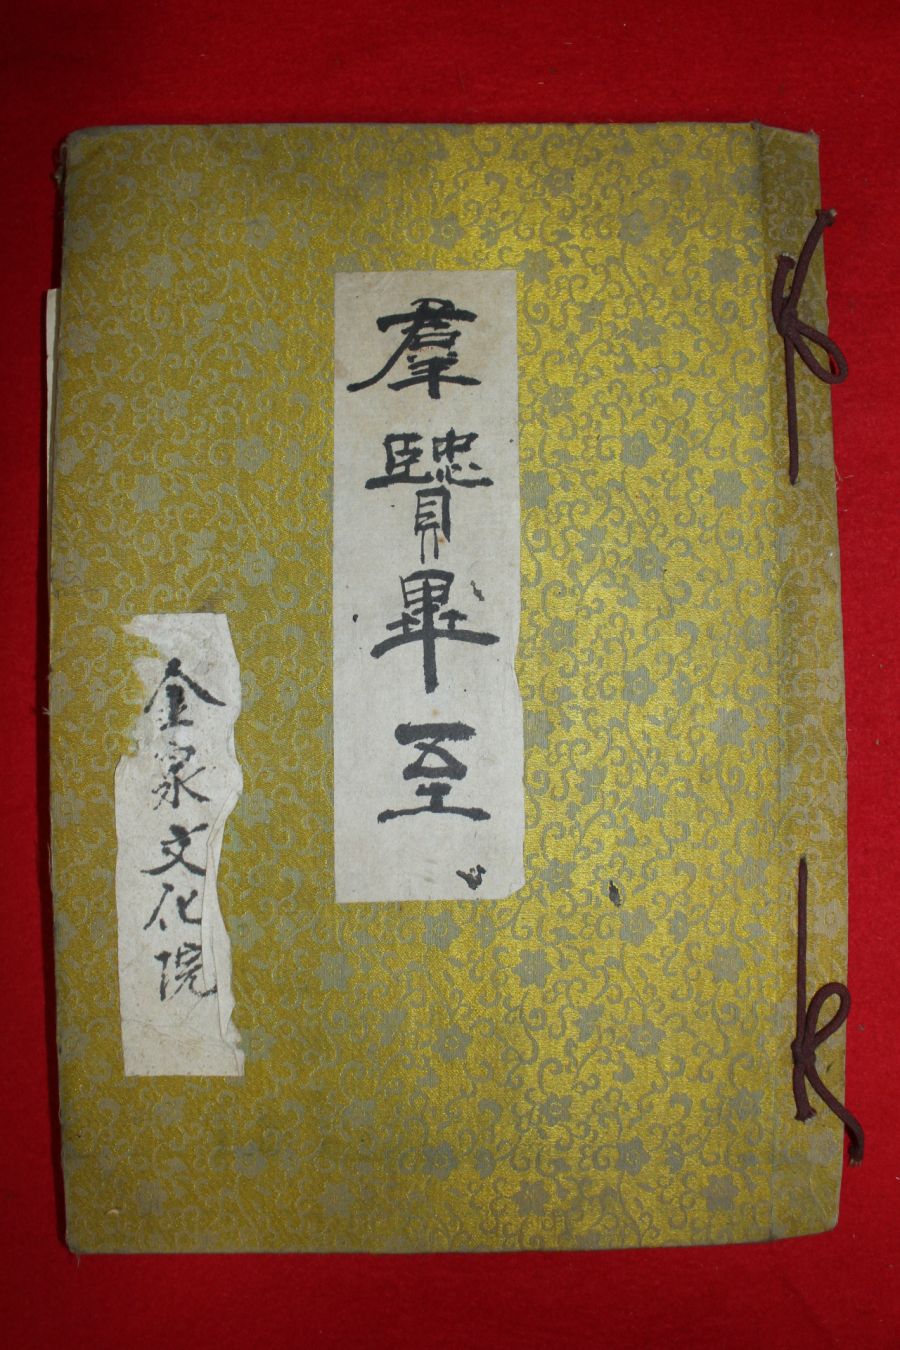 羣賢畢至
金泉文化院